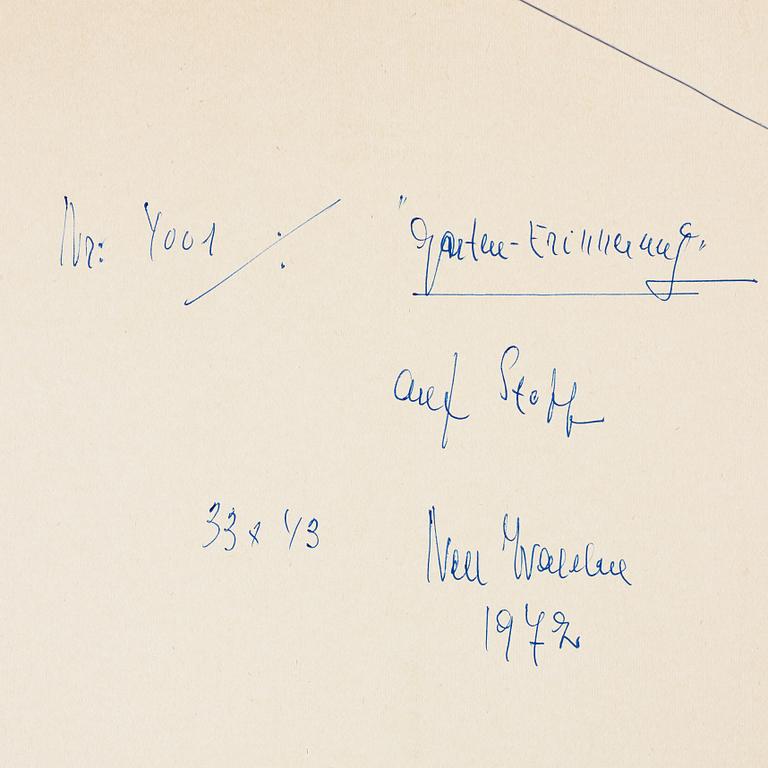 Nr: 4001 ./. "Garten-Erinnerung"
auf Stoff
33 x 43 Nell Walden
1972